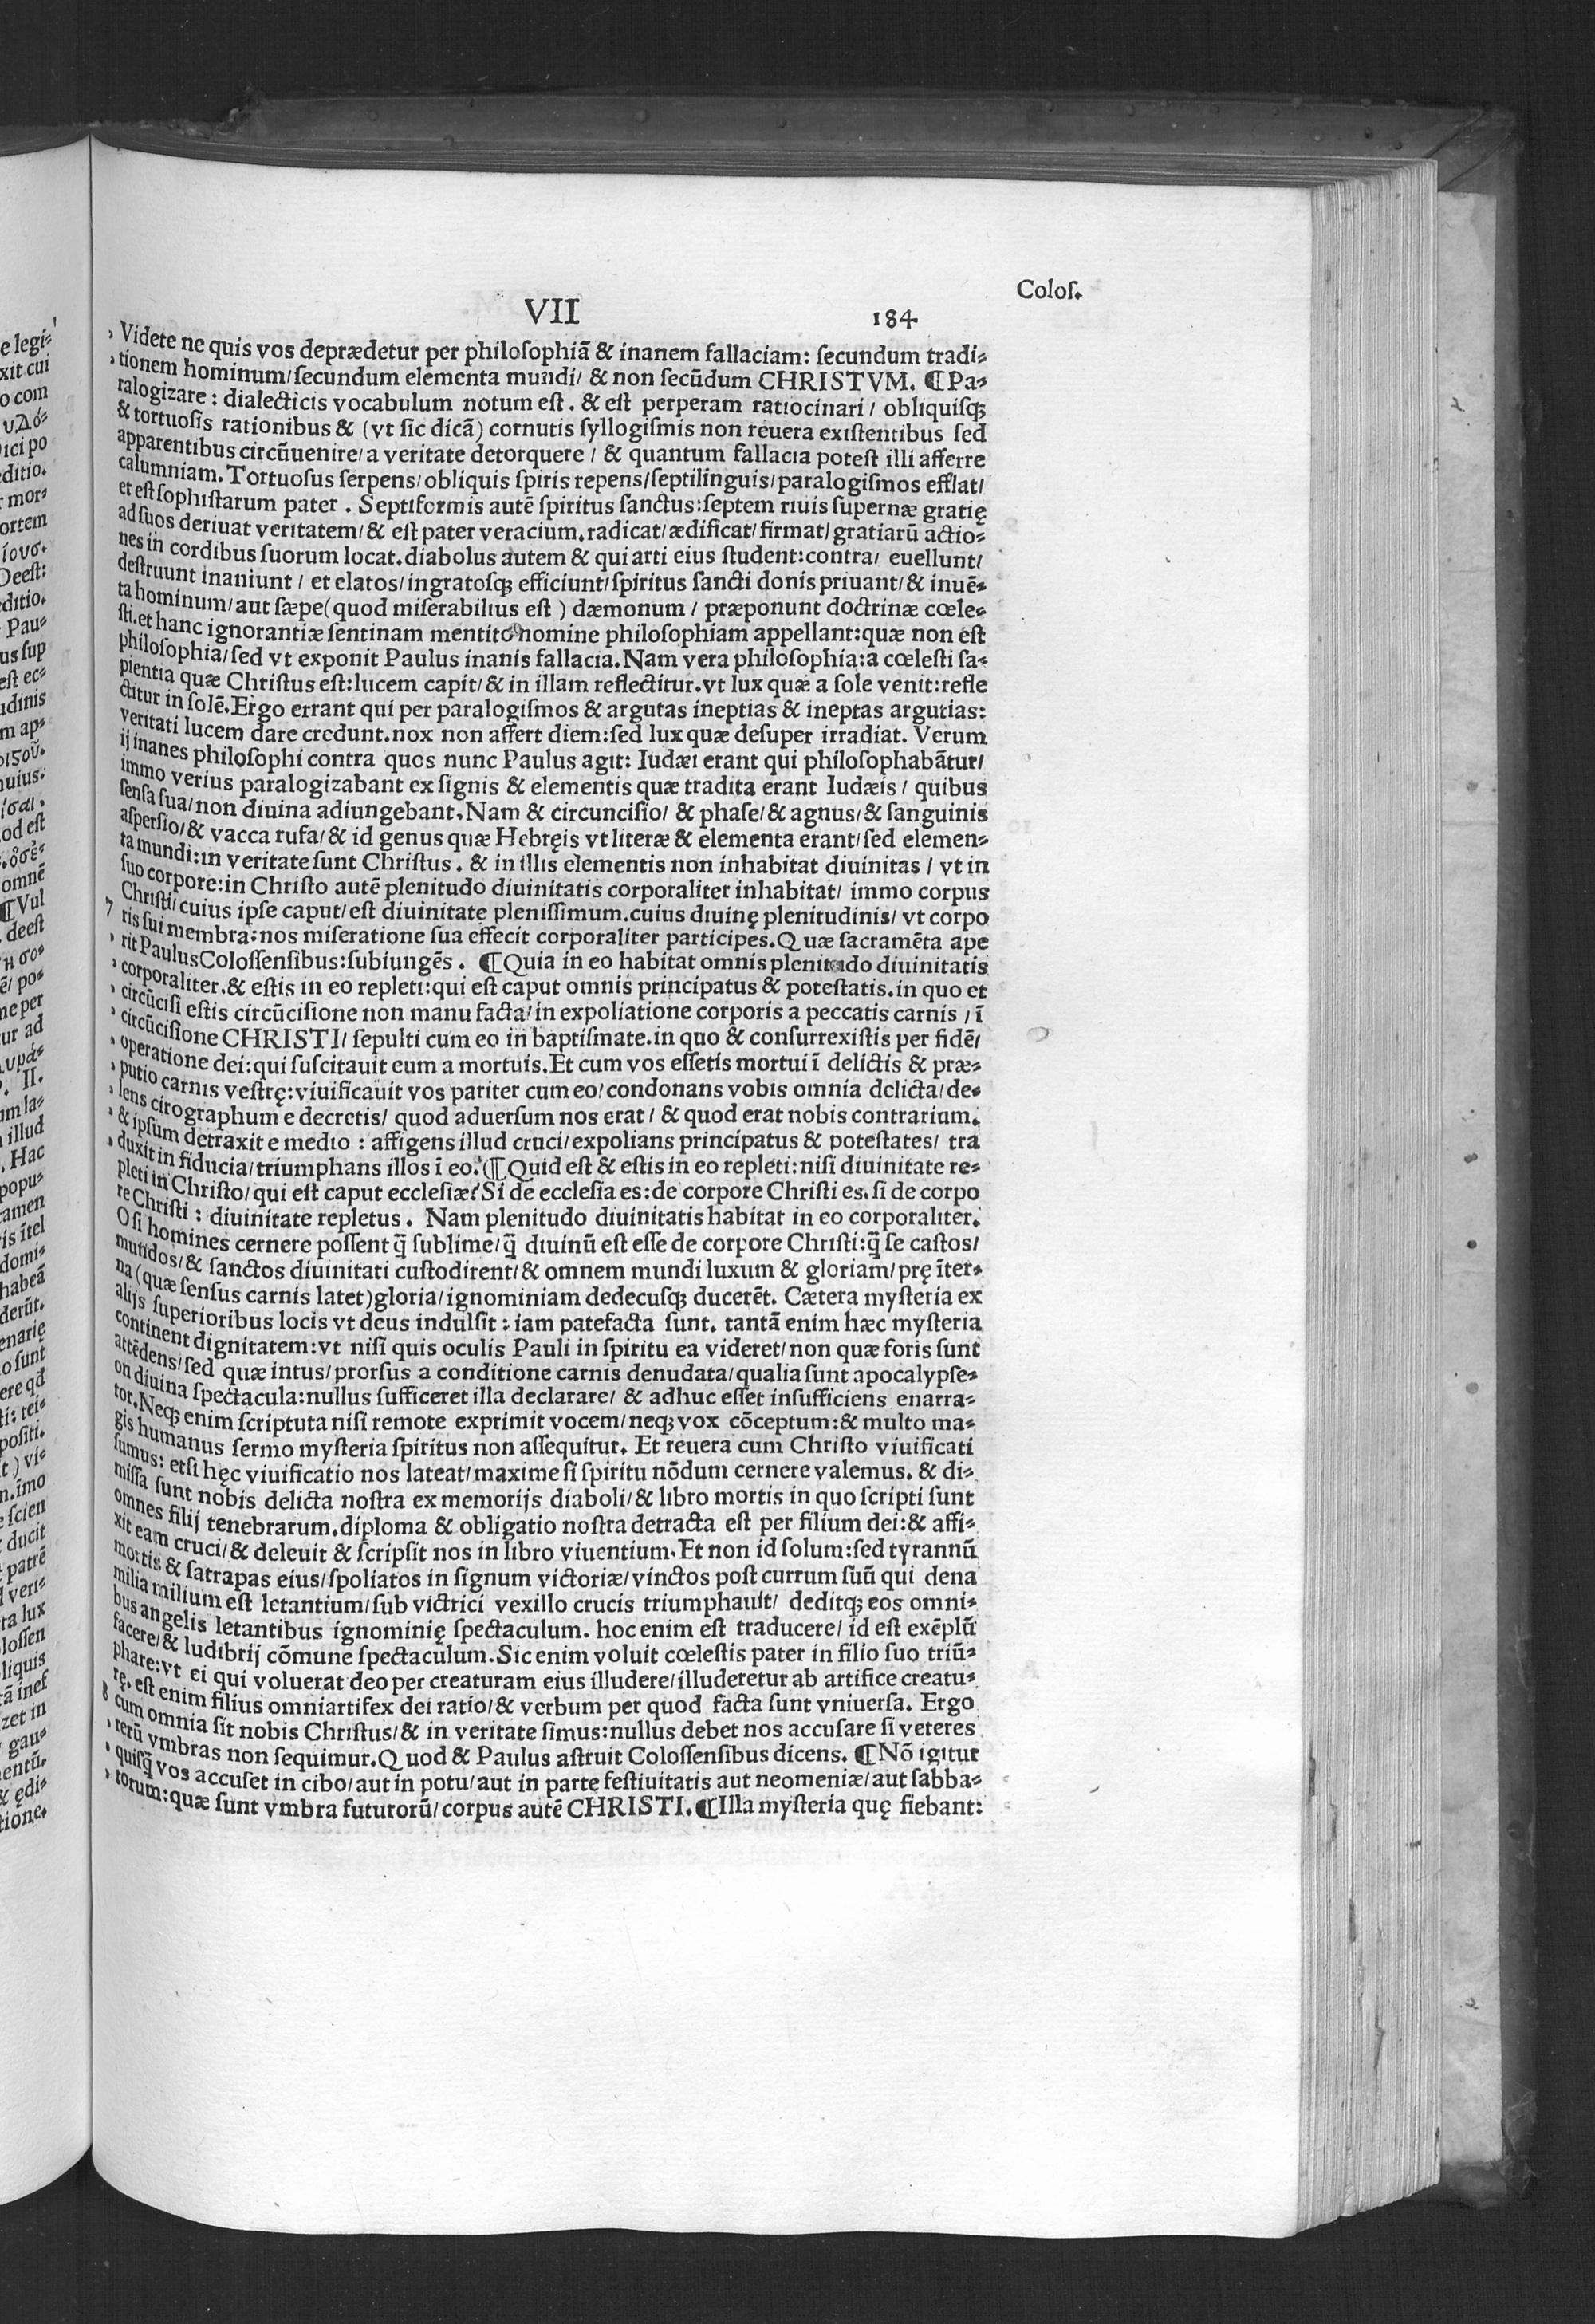 Colos.
VII 184
Videte ne quis vos deprædetur per philosophiã & inanem fallaciam: secundum tradi-
tionem hominum/secundum elementa mundi/ & non secũdum CHRISTVM. ¶Pa-
ralogizare: dialecticis vocabulum notum est. & est perperam ratiocinari/ obliquisq;
& tortuosis rationibus & (vt sic dicã) cornutis syllogismis non reuera existentibus sed
apparentibus circũuenire/a veritate detorquere / & quantum fallacia potest illi afferre
calumniam. Tortuosus serpens/obliquis spiris repens/septilinguis/paralogismos efflat/
et est sophistarum pater. Septiformis autẽ spiritus sanctus:septem riuis supernæ gratię
ad suos deriuat veritatem/& est pater veracium.radicat/ædificat/firmat/gratiarũ actio-
nes in cordibus suorum locat.diabolus autem & qui arti eius student:contra/ euellunt/
destruunt inaniunt/ et elatos/ingratosq; efficiunt/spiritus sancti donis priuant/& inuẽ-
ta hominum/aut sæpe(quod miserabilius est) dæmonum/ præponunt doctrinæ cœle-
sti.et hanc ignorantiæ sentinam mentito nomine philosophiam appellant:quæ non est
philosophia/sed vt exponit Paulus inanis fallacia.Nam vera philosophia:a cœlesti sa-
pientia quæ Christus est:lucem capit/& in illam reflectitur.vt lux quæ a sole venit:refle
ctitur in solẽ.Ergo errant qui per paralogismos & argutas ineptias & ineptas argutias:
veritati lucem dare credunt.nox non affert diem:sed lux quæ desuper irradiat. Verum
ij inanes philosophi contra quos nunc Paulus agit: Iudæi erant qui philosophabãtur/
immo verius paralogizabant ex signis & elementis quæ tradita erant Iudæis/ quibus
sensa sua/non diuina adiungebant.Nam & circuncisio/ & phase/& agnus/& sanguinis
aspersio/& vacca rufa/& id genus quæ Hebręis vt literæ & elementa erant/sed elemen-
ta mundi:in veritate sunt Christus. & in illis elementis non inhabitat diuinitas/ vt in
suo corpore:in Christo autẽ plenitudo diuinitatis corporaliter inhabitat/ immo corpus
Christi/cuius ipse caput/est diuinitate plenissimum.cuius diuinę plenitudinis/ vt corpo
7 ris sui membra:nos miseratione sua effecit corporaliter participes.Quæ sacramẽta ape
rit Paulus Colossensibus:subiungẽs. ¶Quia in eo habitat omnis plenitudo diuinitatis
corporaliter.& estis in eo repleti:qui est caput omnis principatus & potestatis.in quo et
circũcisi estis circũcisione non manu facta/in expoliatione corporis a peccatis carnis/ĩ
circũcisione CHRISTI/ sepulti cum eo in baptismate.in quo & consurrexistis per fidẽ/
operatione dei:qui suscitauit eum a mortuis.Et cum vos essetis mortui ĩ delictis & præ-
putio carnis vestrę:viuificauit vos pariter cum eo/condonans vobis omnia delicta/de-
lens cirographum e decretis/ quod aduersum nos erat/ & quod erat nobis contrarium.
& ipsum detraxit e medio: affigens illud cruci/expolians principatus & potestates/ tra
duxit in fiducia/triumphans illos ĩ eo. ¶Quid est & estis in eo repleti:nisi diuinitate re-
pleti in Christo/qui est caput ecclesiæ? Si de ecclesia es:de corpore Christi es.si de corpo
re Christi: diuinitate repletus. Nam plenitudo diuinitatis habitat in eo corporaliter.
O si homines cernere possent q̃ sublime/q̃ diuinũ est esse de corpore Christi:q̃ se castos/
mundos/& sanctos diuinitati custodirent/& omnem mundi luxum & gloriam/prę ĩter-
na(quæ sensus carnis latet)gloria/ignominiam dedecusq; ducerẽt. Cætera mysteria ex
alijs superioribus locis vt deus indulsit: iam patefacta sunt. tantã enim hæc mysteria
continent dignitatem:vt nisi quis oculis Pauli in spiritu ea videret/non quæ foris sunt
attẽdens/sed quæ intus/prorsus a conditione carnis denudata/qualia sunt apocalypse-
on diuina spectacula:nullus sufficeret illa declarare/ & adhuc esset insufficiens enarra-
tor.Neq; enim scriptuta nisi remote exprimit vocem/neq; vox cõceptum:& multo ma-
gis humanus sermo mysteria spiritus non assequitur. Et reuera cum Christo viuificati
sumus: etsi hęc viuificatio nos lateat/maxime si spiritu nõdum cernere valemus. & di-
missa sunt nobis delicta nostra ex memorijs diaboli/& libro mortis in quo scripti sunt
omnes filij tenebrarum.diploma & obligatio nostra detracta est per filium dei:& affi-
xit eam cruci/& deleuit & scripsit nos in libro viuentium.Et non id solum:sed tyrannũ
mortis & satrapas eius/spoliatos in signum victoriæ/vinctos post currum suũ qui dena
milia milium est letantium/sub victrici vexillo crucis triumphauit/ deditq; eos omni-
bus angelis letantibus ignominię spectaculum. hoc enim est traducere/ id est exẽplũ
facere/& ludibrij cõmune spectaculum.Sic enim voluit cœlestis pater in filio suo triũ-
phare:vt ei qui voluerat deo per creaturam eius illudere/illuderetur ab artifice creatu-
rę.est enim filius omniartifex dei ratio/& verbum per quod facta sunt vniuersa. Ergo
8 cum omnia sit nobis Christus/& in veritate simus:nullus debet nos accusare si veteres
rerũ vmbras non sequimur.Quod & Paulus astruit Colossensibus dicens. ¶Nõ igitur
quisq̃ vos accuset in cibo/aut in potu/aut in parte festiuitatis aut neomeniæ/aut sabba-
torum:quæ sunt vmbra futurorũ/corpus autẽ CHRISTI.¶Illa mysteria quę fiebant: